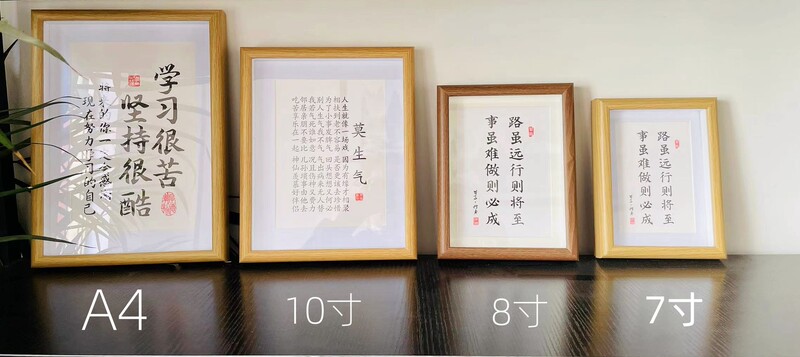 学习很苦
坚持很酷
将来的你一定会感谢
现在努力学习的自己
莫生气
人生就像一场戏 因为有缘才相聚
相扶到老不容易 是否更该去珍惜
为了小事发脾气 回头想想又何必
别人生气我不气 气出病来无人替
我若气死谁如意 况且伤神又费力
邻居亲朋不要比 儿孙琐事由他去
吃苦享乐在一起 神仙羡慕好伴侣
路虽远行则将至
事虽难做则必成
路虽远行则将至
事虽难做则必成
A4
10寸
8寸
7寸